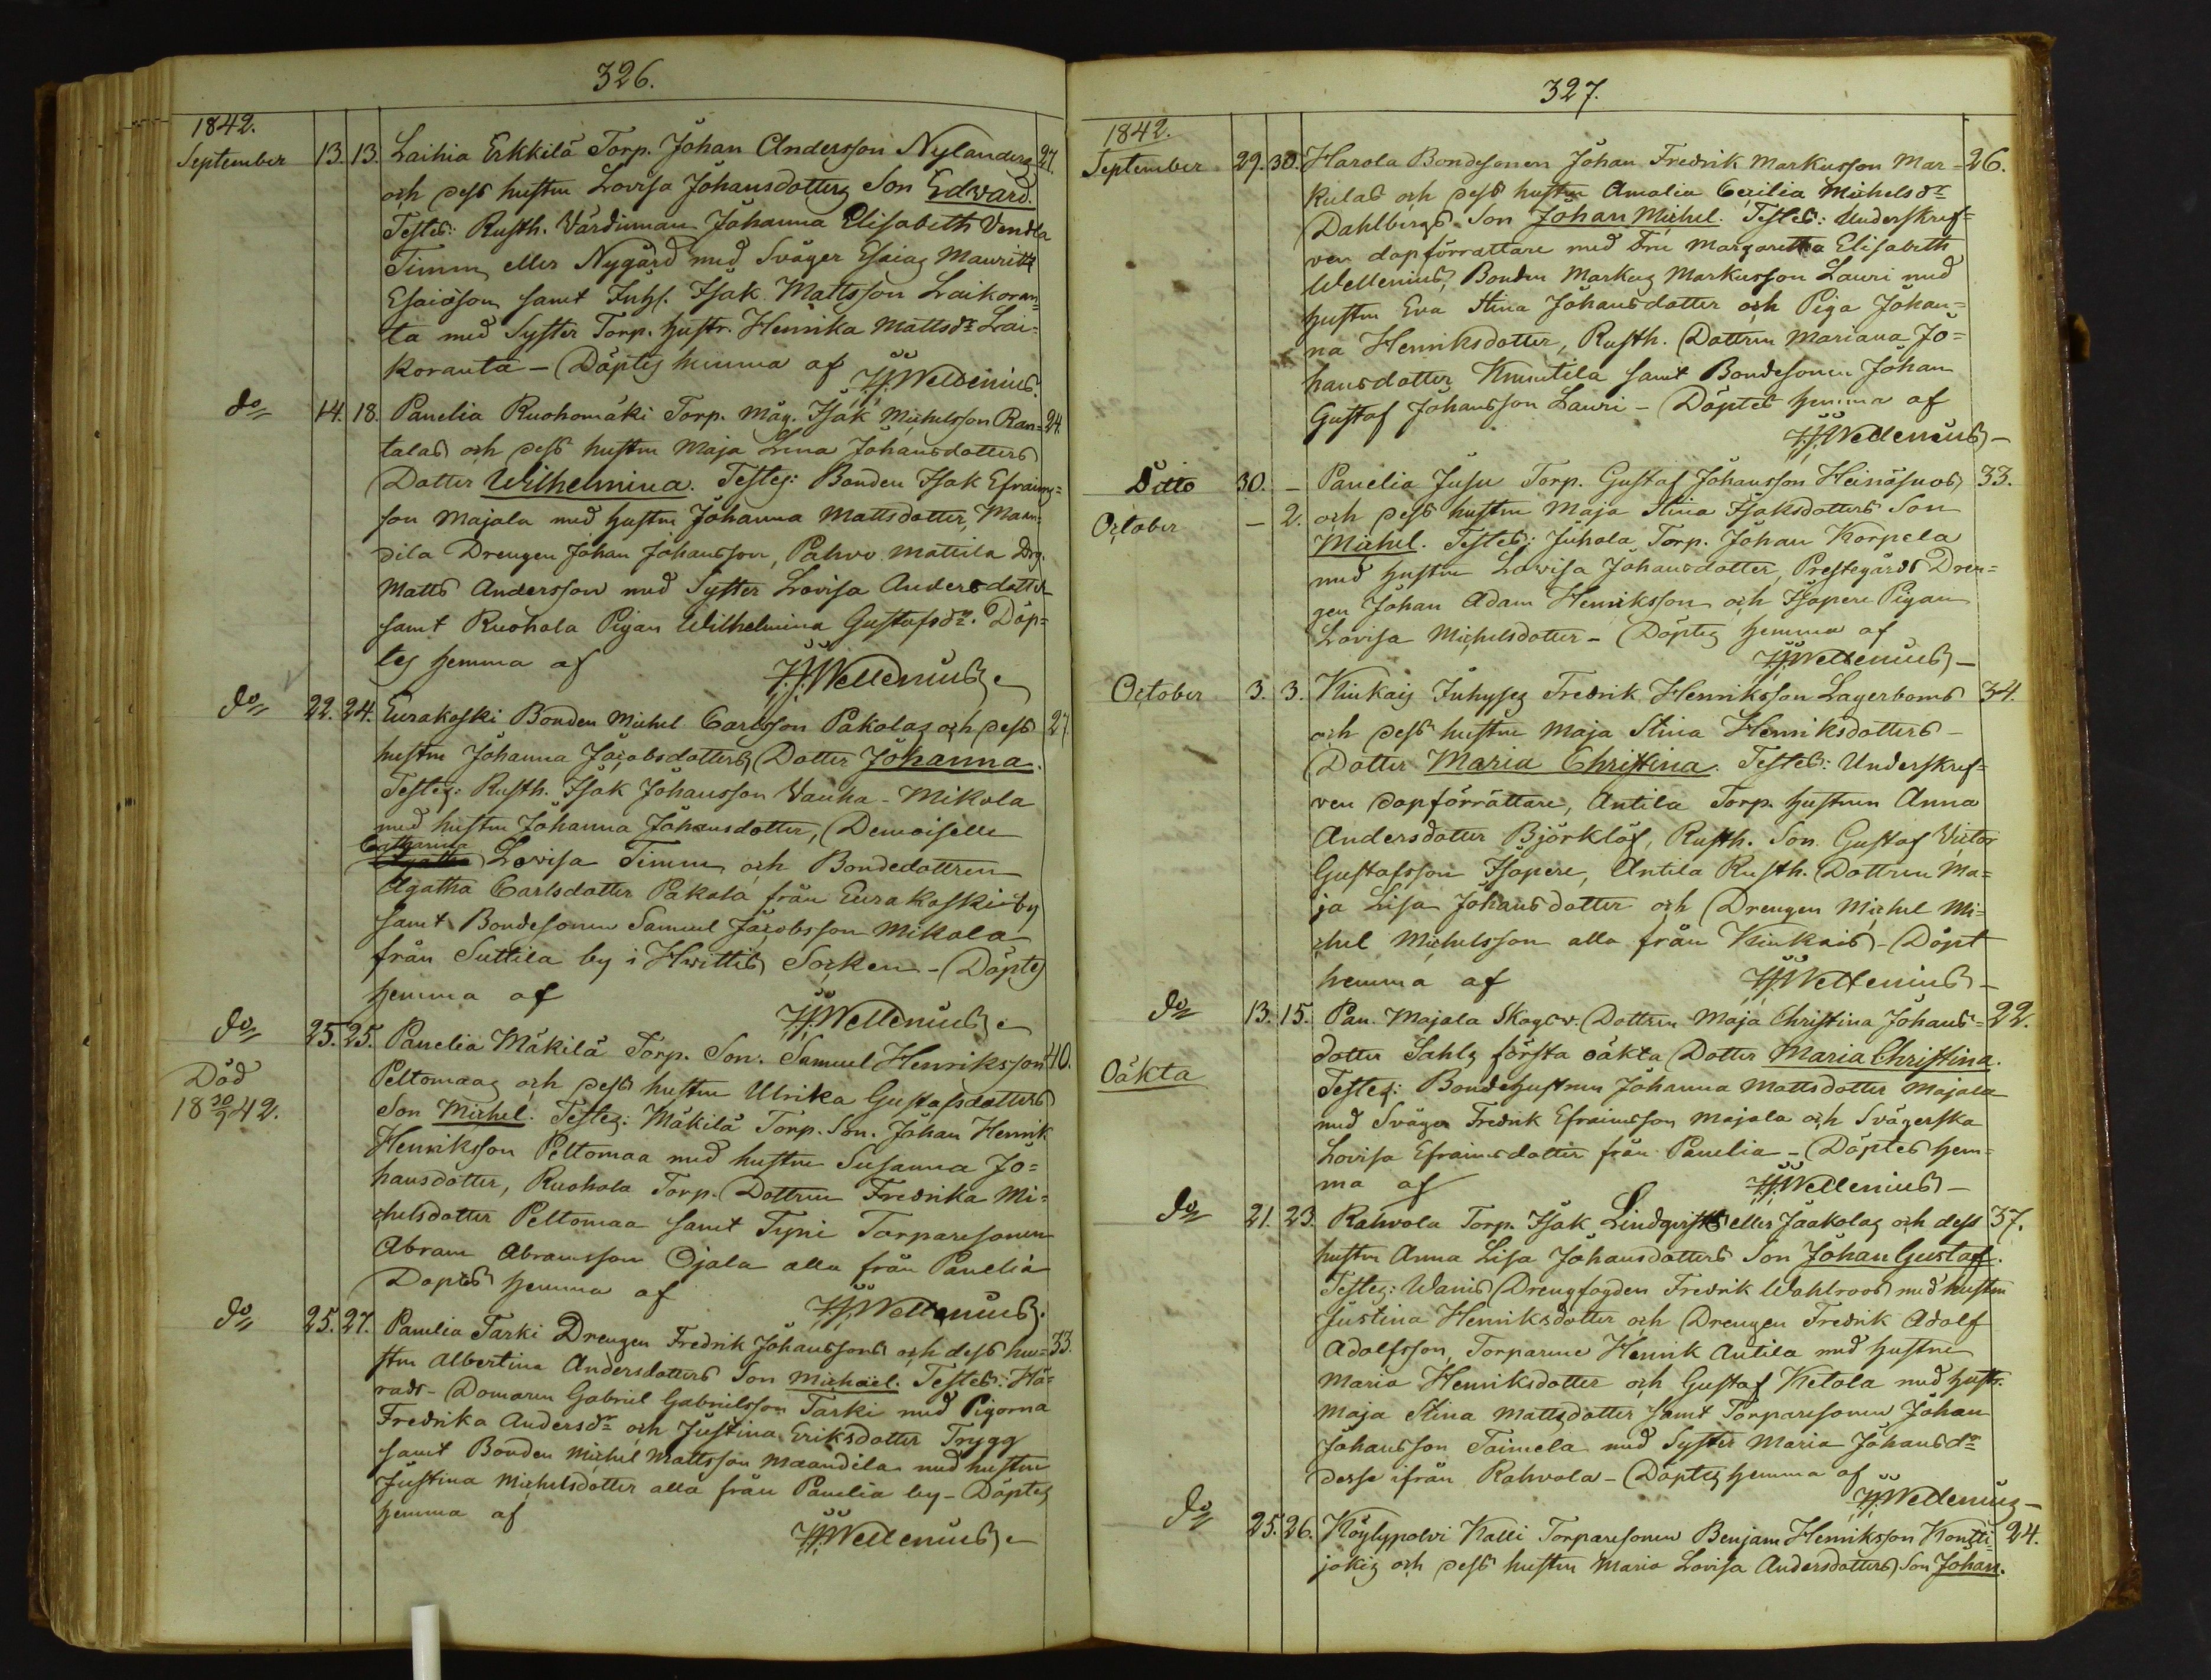 326.
1842.
September 13. 13. Laihia Erkkilä Torp. Johan Andersson Nylanders 27.
och dess hustru Lovisa Johansdotters Son Edvard.
Testes: Rusth. Värdinnan Johanna Elisabeth Vendla
Timm eller Nygård med Svåger Esaias Mauritz
Esaiäson samt Inhs. Isak Mattsson Laikoran=
ta med Syster Torp. hustr. Henrika Mattsdr Lai=
koranta - Döptes hemma af J.J. Wellenius.
do 14. 18. Panelia Ruohomäki Torp. måg. Isak Michelsson Ran= 24.
talas och dess hustru Maja Lena Johansdotters
Dotter Wilhelmina. Testes: Bonden Isak Efraims=
son Majala med hustru Johanna Mattsdotter, Maan=
dila Drengen Johan Johansson, Pahvo Mattila Drg.
Matts Andersson med Syster Lovisa Andersdotter
samt Ruohola Pigan Wilhelmina Gustafsdr. Döp=
tes hemma af J.J. Wellenius
do 22. 24. Eurakoski Bonden Michel Carlsson Pakolas och dess 27
hustru Johanna Jacobsdotters Dotter Johanna.
Testes: Rusth. Isak Johansson Vanha-Mikola
med hustru Johanna Johansdotter, Demoiselle
Catharina
Agatha Lovisa Timm och Bondedottren
Agatha Carlsdotter Pakola från Eurakoski by
samt Bondesonen Samuel Jacobsson Mikola
från Suttila by i Hvittis Socken - Döptes
hemma af J.J. Wellenius
do 25. 25. Panelia Mäkilä Torp. Son. Samuel Henriksson 40.
Död
18 30/9 42.
Peltomaas och dess hustru Ulrika Gustafsdotters
Son Michel. Testes: Mäkilä Torp. Son. Johan Henrik
Henriksson Peltomaa med hustru Susanna Jo=
hansdotter, Ruohola Torp. Dottren Fredrika Mi=
chelsdotter Peltomaa samt Typi Torparesonen
Abram Abramsson Ojala alla från Panelia
Döptes hemma af J.J. Wellenius.
do 25. 27. Panelia Tarki Drengen Fredrik Johanssons och dess hu= 33.
stru Albertina Andersdotters Son Michael. Testes: Hä=
rads-Domaren Gabriel Gabrielsson Tarki med Pigorna
Fredrika Andersdr och Justina Eriksdotter Trygg
samt Bonden Michel Mattsson Maandila med hustru
Justina Michelsdotter alla från Panelia by - Döptes
hemma af J.J. Wellenius
327.
1842.
September 29. 30. Harola Bondesonen Johan Fredrik Markusson Mar= 26.
kulas och dess hustru Amalia Cecilia Michelsdr
Dahlbergs Son Johan Michel. Testes: Underskref=
ven dopförrättare med Fru Margaretha Elisabeth
Wellenius, Bonden Markus Markusson Lauri med
hustru Eva Stina Johansdotter och Piga Johan=
na Henriksdotter, Rusth. Dottren Mariana Jo=
hansdotter Knuutila samt Bondesonen Johan
Gustaf Johansson Lauri - Döptes hemma af
J.J. Wellenius -
Ditto 30. - Panelia Jusu Torp. Gustaf Johansson Heinäsuos 33.
October - 2. och dess hustru Maja Stina Isaksdotters Son
Michel. Testes: Juhola Torp. Johan Korpela
med hustru Lovisa Johansdotter, Prestegårds Dren=
gen Johan Adam Henriksson och Isopere Pigan
Lovisa Michelsdotter - Döptes hemma af
J.J. Wellenius -
October 3. 3. Kiukais Inhyses Fredrik Henriksson Lagerboms 34.
och dess hustru Maja Stina Henriksdotters -
Dotter Maria Christina. Testes: Underskref=
ven dopförrättare, Antila Torp. hustrun Anna
Andersdotter Björklöf, Rusth. Son. Gustaf Victor
Gustafsson Isopere, Antila Rusth. Dottren Ma=
ja Lisa Johansdotter och Drengen Michel Mi=
chel Michelsson alla från Kiukais - Döpt
hemma af J.J. Wellenius -
do 13. 15. Pan. Majala Skogv. Dottren Maja Christina Johans= 22.
Oäkta
dotter Sahls första oäkta Dotter Maria Christina.
Testes: Bondehustrun Johanna Mattsdotter Majala
med Svåger Fredrik Efraimsson Majala och Svägerska
Lovisa Efraimsdotter från Panelia - Döptes hem=
ma af J.J. Wellenius -
do 21. 23. Rahvola Torp. Isak Lindqvists eller Jaakolas och dess 37.
hustru Anna Lisa Johansdotters Son Johan Gustaf.
Testes: Wanis Drengfogden Fredrik Wahlroos med hustru
Justina Henriksdotter och Drengen Fredrik Adolf
Adolfsson, Torparene Henrik Antila med hustru
Maria Henriksdotter och Gustaf Ketola med hustr.
Maja Stina Mattsdotter samt Torparesonen Johan
Johansson Taimela med Syster Maria Johansdr
desse ifrån Rahvola - Döptes hemma af
J.J. Wellenius -
do 25. 26. Köylypolvi Kalli Torparesonen Benjam Henriksson Kontti= 24.
jokis och dess hustru Maria Lovisa Andersdotters Son Johan.